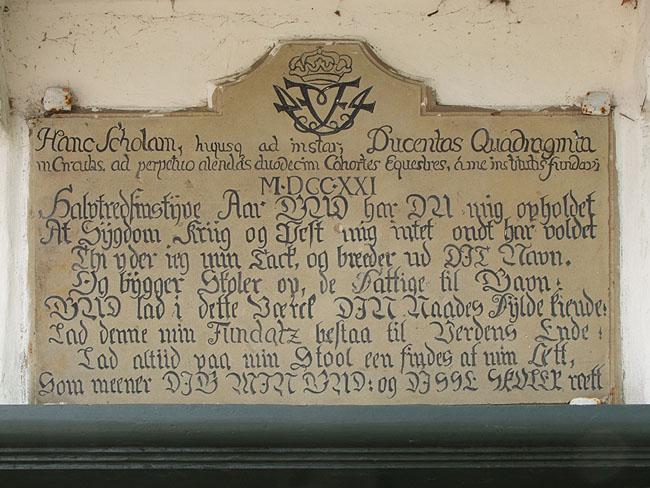 Hanc Scholam, hujusq ad instar; Ducentas Quadraginta
in Circulis, ad perpetuo alendas duodecim Cohortes Equestres, à me institutis fundavi;
M·DCC·XXI
Halvtredsinstÿve Aar GUD har DU mig opholdet
At Sÿgdom Kriig og Pest mig intet ondt har voldet
Thi ÿder ieg min Tack, og breeder ud DIT Navn.
Og bÿgger Skoler op, de Fattige til Gavn:
GUD lad i dette Værck DIN Naades Fÿlde kiende:
Lad denne min Fundatz bestaa til Verdens Ende:
Lad altiid paa min Stool een findes af min Ætt,
Som meener DIG MIN GUD: og DISSE SKOLER rætt